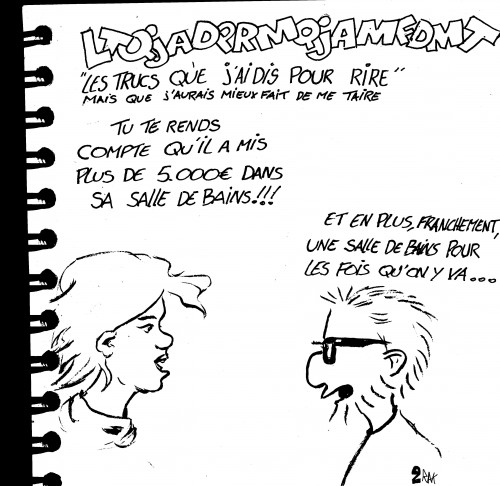 LTQjADPRMQjAMFDMT
"LES TRUCS QUE j'AI DIS POUR RIRE"
MAIS QUE j'AURAIS MIEUX FAIT DE ME TAIRE
TU TE RENDS
COMPTE QU'IL A MIS
PLUS DE 5.000€ DANS
SA SALLE DE BAINS!!!
ET EN PLUS, FRANCHEMENT,
UNE SALLE DE BAINS POUR
LES FOIS QU'ON Y VA...
2RAK